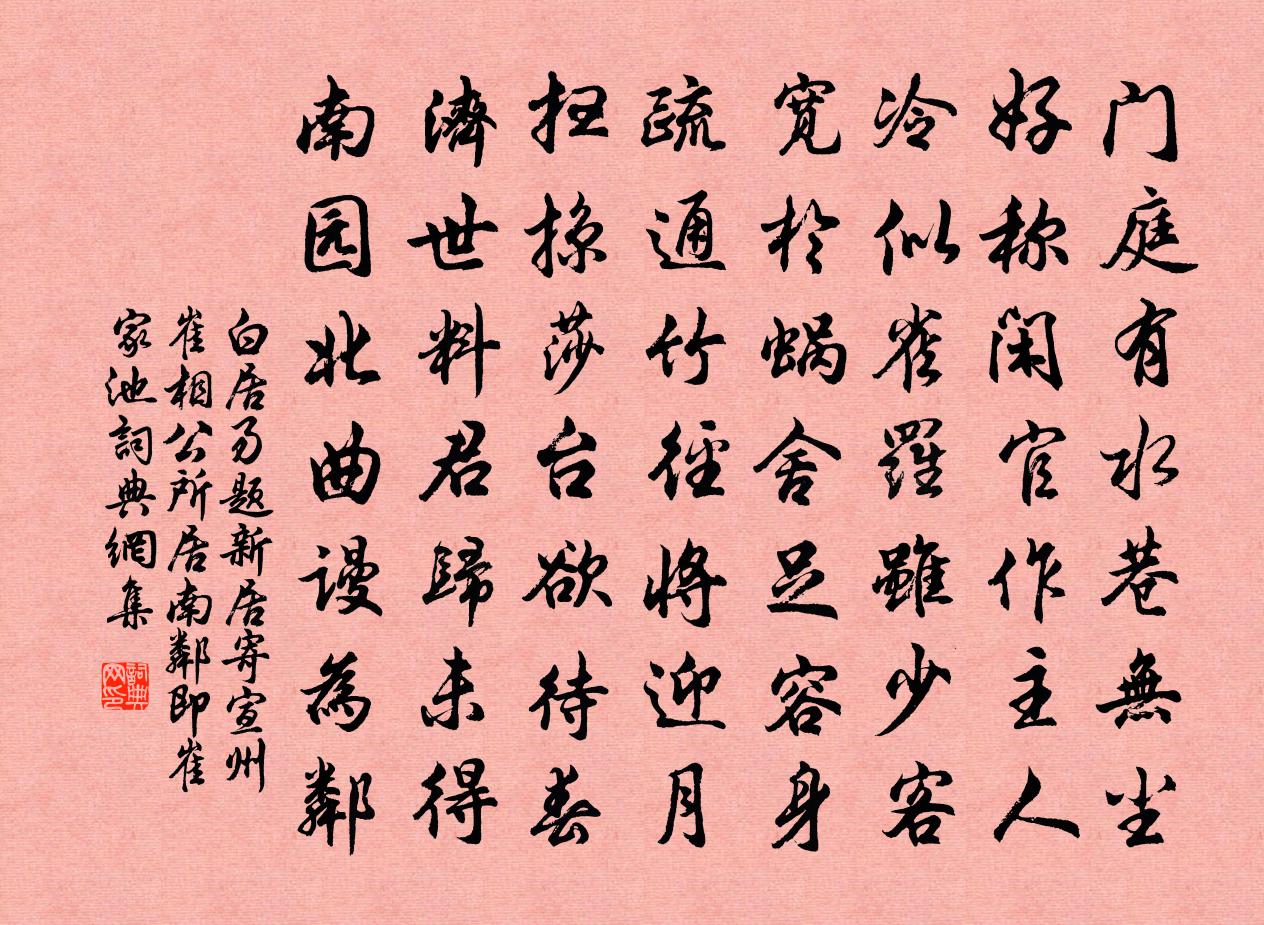 门庭有水巷無尘
好称闲官作主人
冷似雀羅雖少客
寛於蜗舍足容身
疏通竹徑將迎月
扫掠莎台欲待春
濟世料君歸未得
南园北曲谩為鄰
白居易题新居寄宣州
崔相公所居南鄰即崔
家池詞典網集
詞典网印